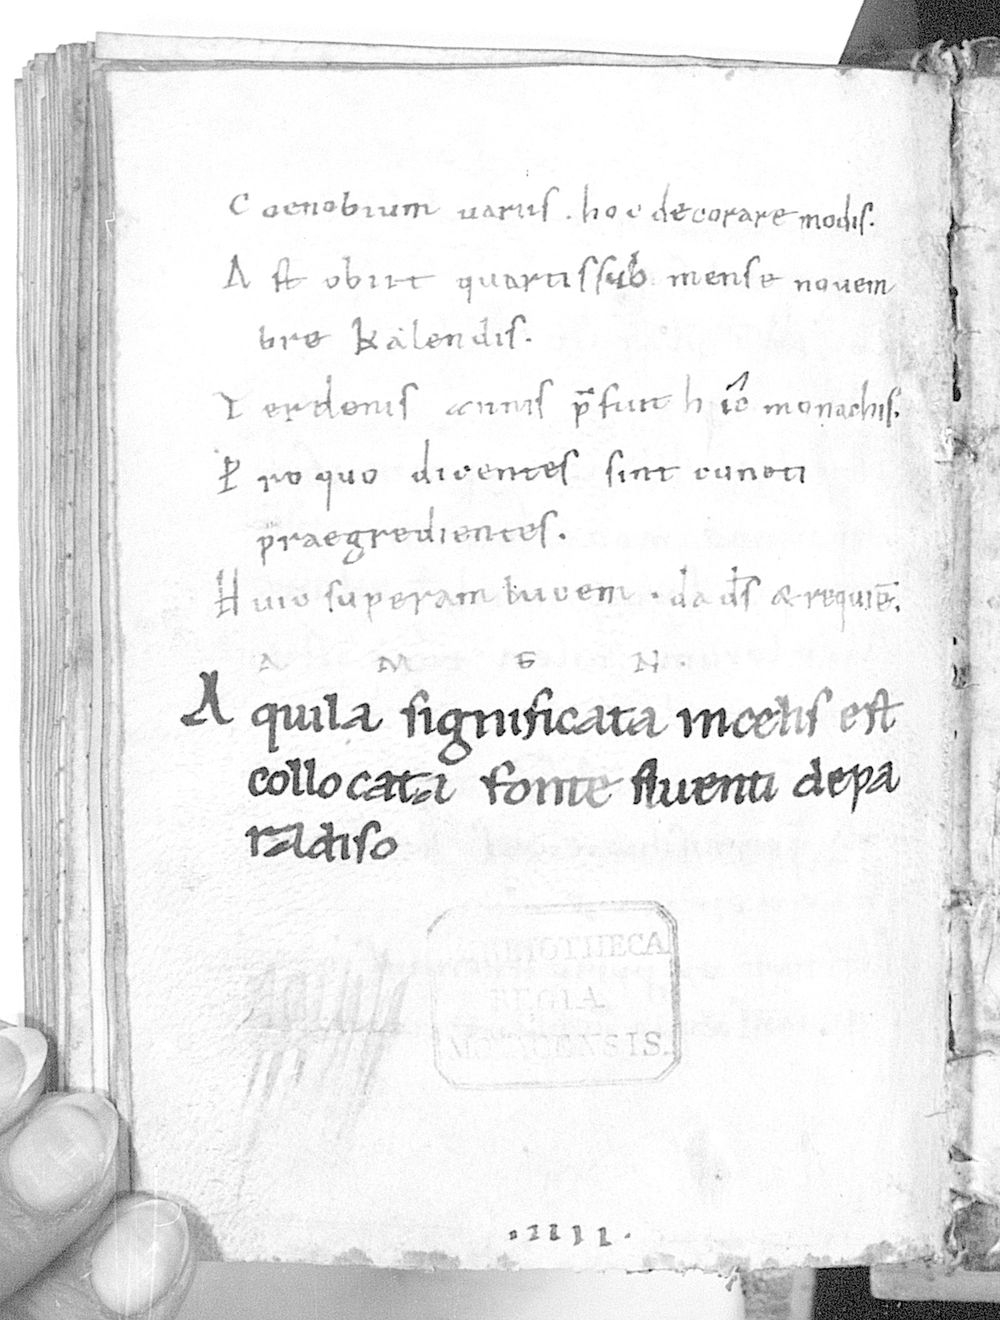 Coenobium uariis . hoc decorare modis.
Ast obiit quartis sub mense nouem
bre Kalendis.
Ter denis annis p̄fuit hic monachis.
Pro quo dicentes sint cuncti
praegredientes.
Huic superam lucem . da d̄s & requiē.
A M E N.
Aquila significata incelis est
collocata fonte fluenti depa
radiso
BIBLIOTHECA
REGIA
MONACENSIS.
.IIII.